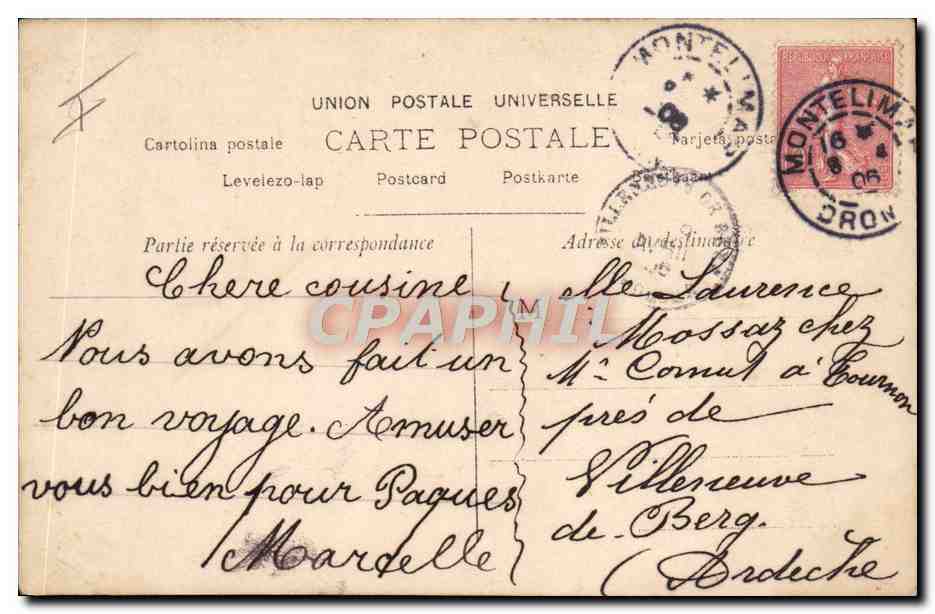 UNION POSTALE UNIVERSELLE
CARTE POSTALE
Cartolina postale
Tarjeta posta
Levelezo-lap Postcard Postkarte
MONTELIMAR
MONTELIMAR
16
8 4
06
DROM
Partie réservée à la correspondance
Adresse du destinataire
Chere cousine
Nous avons fait un
bon voyage. Amuser
vous bien pour Paques
Marcelle
M
CPAPHIL
elle Laurence
Mossaz chez
Mr Comut à Tournon
prés de
Villeneuve
de Berg.
(Ardeche